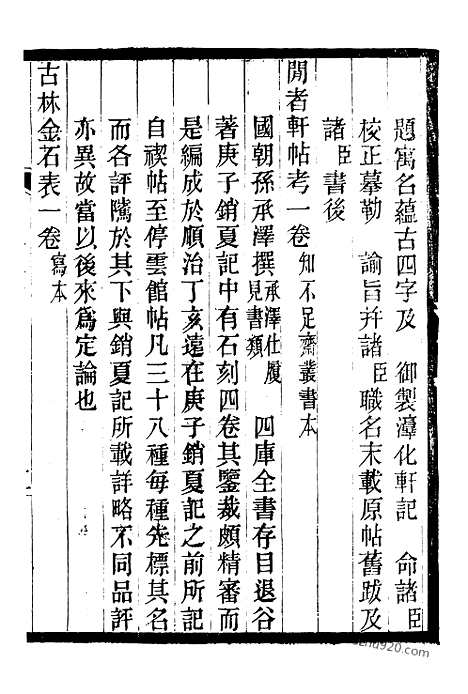 題寓名蘊古四字及　御製淳化軒記　命諸臣
校正摹勒　諭旨幷諸臣職名末載原帖舊跋及
諸臣書後
閒者軒帖考一卷知不足齋叢書本
國朝孫承澤撰承澤仕履見書類　四庫全書存目退谷
著庚子銷夏記中有石刻四卷其鑒裁頗精審而
是編成於順治丁亥遠在庚子銷夏記之前所記
自禊帖至停雲館帖凡三十八種每種先標其名
而各評隲於其下與銷夏記所載詳略不同品評
亦異故當以後來爲定論也
古林金石表一卷寫本
shu920.com